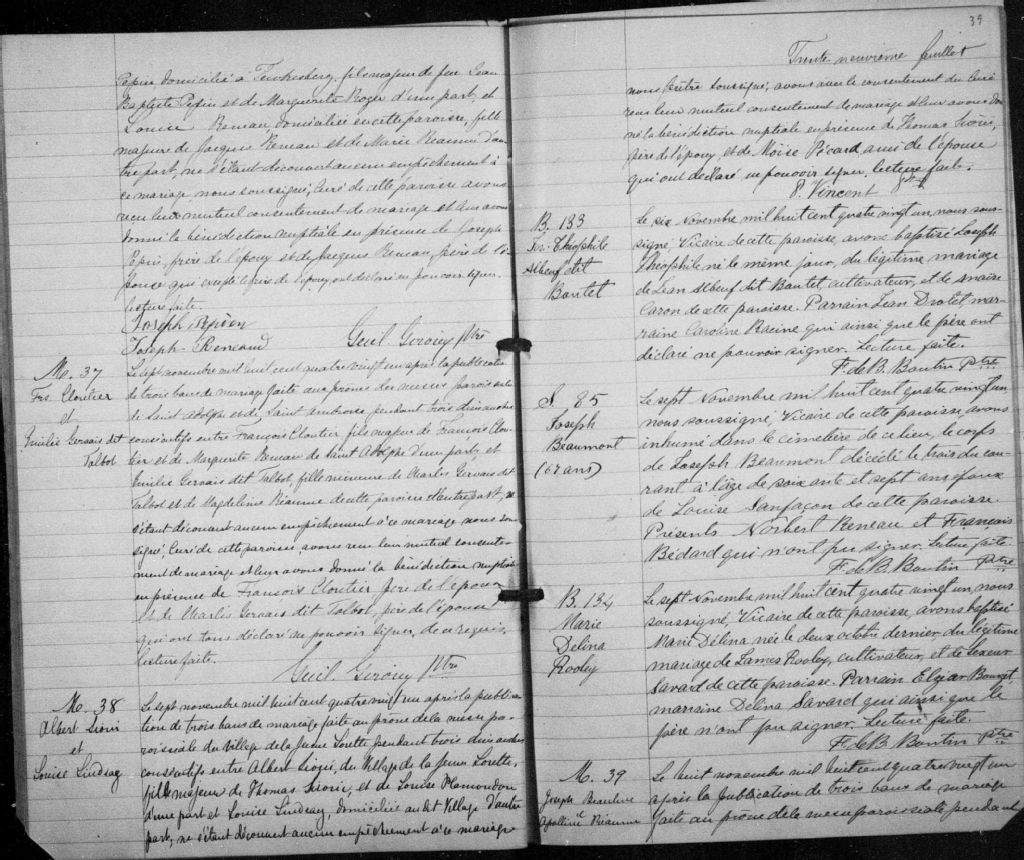 Pepin, domicilié à Tewkesberg, fils majeur de feu Jean
Baptiste Pepin et de Marguerite Roger d'une part, et
Louise Reneau domiciliée en cette paroisse, fille
majeure de Jacques Reneau et de Marie Réaume d'au
tre part, ne s'étant découvert aucun empêchement à
ce mariage, nous soussigné, Curé de cette paroisse avons
reçu leur mutuel consentement de mariage et leur avons
donné la bénédiction nuptiale en présence de Joseph
Pepin, frère de l'époux et de Jacques Reneau, père de l'é
pouse qui excepté le père de l'époux, ont déclaré ne pouvoir signer.
Lecture faite.
Joseph Pepin
Joseph Reneaud Guil. Giroux Ptre
M. 37
Frs Cloutier
et
Emilie Gervais dit
Talbot
Le sept novembre mil huit cent quatre vingt un après la publication
de trois bans de mariage faite aux prônes des messes paroissiales
de Saint Adolphe et de Saint Ambroise pendant trois dimanches
consécutifs entre François Cloutier, fils majeur de François Clou-
tier et de Marguerite Renean de Saint Adolphe d'une part, et
Emilie Gervais dit Talbot, fille mineure de Charles Gervais dit
Talbot et de Magdeleine Réaume de cette paroisse d'autre part, ne
s'étant découvert aucun empêchement à ce mariage nous sous-
signé, Curé de cette paroisse avons reçu leur mutuel consente-
ment de mariage et leur avons donné la bénédiction nuptiale
en présence de François Cloutier père de l'époux
et de Charles Gervais dit Talbot, père de l'épouse
qui ont tous déclaré ne pouvoir signer, de ce requis,
lecture faite.
Guil. Giroux Ptre
M. 38
Albert Sioui
et
Louise Lindsay
Le sept novembre mil huit cent quatre vingt un après la publica
tion de trois bans de mariage faite au prône de la messe pa-
roissiale du Village de la Jeune Lorette pendant trois dimanches
consécutifs entre Albert Sioui, du Village de la Jeune Lorette,
fils majeur de Thomas Sioui, et de Louise Plamondon
d'une part et Louise Lindsay, domiciliée au dit Village d'autre
part, ne s'étant découvert aucun empêchement à ce mariage
39
Trente neuvième feuillet
nous Prêtre soussigné, avons avec le consentement du Curé
reçu leur mutuel consentement de mariage et leur avons don
né la bénédiction nuptiale en présence de Thomas Sioui,
père de l'époux, et de Moïse Picard, ami de l'épouse
qui ont déclaré ne pouvoir signer, lecture faite.
P. Vincent Ptre
B. 133
Jos. Théophile
Albeuf dit
Boutet
Le six Novembre mil huit cent quatre vingt un, nous sous-
signé, Vicaire de cette paroisse, avons baptisé Joseph
Théophile né le même jour, du légitime mariage
de Jean Albeuf dit Boutet cultivateur, et de Marie
Caron de cette paroisse. Parrain Jean Drolet, mar-
raine Caroline Racine qui ainsi que le père ont
déclaré ne pouvoir signer. Lecture faite.
F. de B. Boutin Ptre
S. 85
Joseph
Beaumont
(67 ans)
Le sept Novembre mil huit cent quatre vingt un
nous soussigné, Vicaire de cette paroisse, avons
inhumé dans le cimetière de ce lieu, le corps
de Joseph Beaumont décédé le trois du cou-
rant à l'âge de soixante et sept ans époux
de Louise Sanfaçon de cette paroisse.
Présents Norbert Reneau et François
Bédard qui n'ont pu signer. Lecture faite.
F. de B. Boutin Ptre
B. 134
Marie
Délina
Rooley
Le sept Novembre mil huit cent quatre vingt un, nous
soussigné, Vicaire de cette paroisse, avons baptisé
Marie Délina née le deux octobre dernier, du légitime
mariage de James Rooley, cultivateur, et de
Savard de cette paroisse. Parrain Elzéar Bourget,
marraine Délina Savard qui ainsi que le
père n'ont pu signer. Lecture faite.
F. de B. Boutin Ptre
M. 39
Joseph Beaulieu
et
Apolline Réaume
Le huit novembre mil huit cent quatre vingt un
après la publication de trois bans de mariage
faite au prône de la messe paroissiale pendant